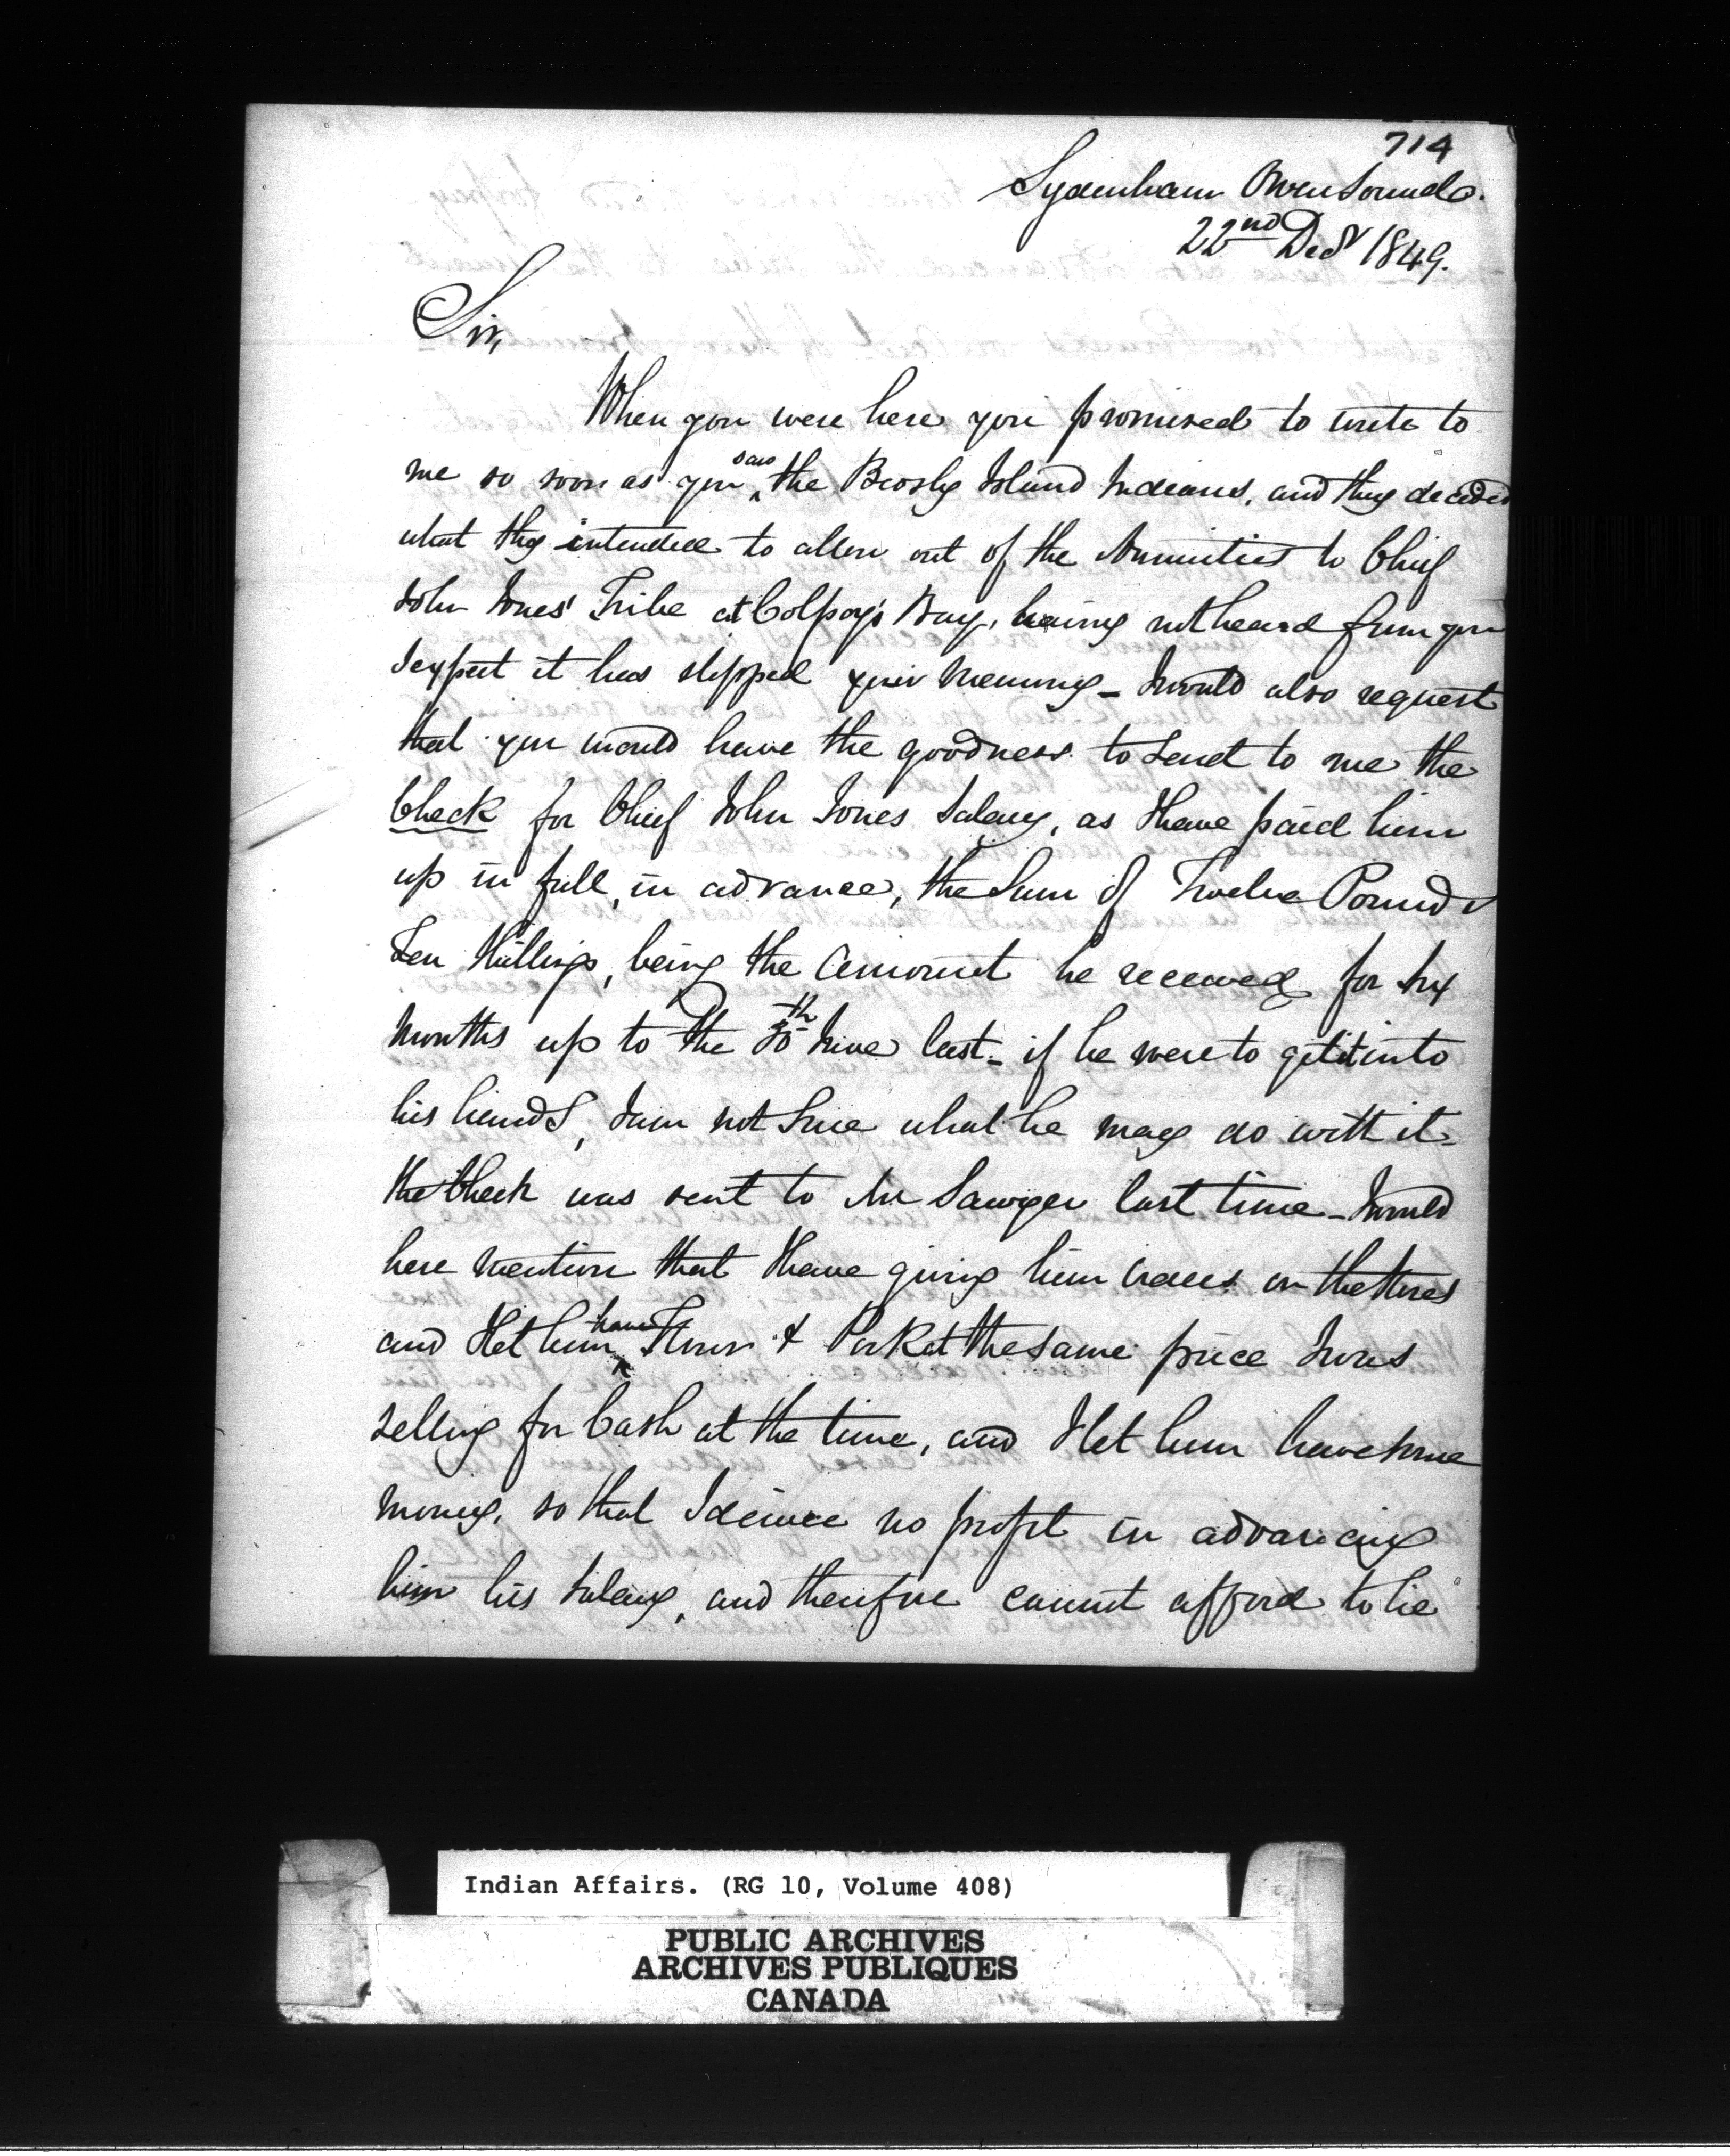 714
Sydenham Owen Sound.
22nd Decr 1849.
Sir,
When you were here you promised to write to
me so soon as you saw the Beasly Island Indians, and they decided
what they intended to allow out of the Annuities to Chief
John Jones' Tribe at Colpoy's Bay, having not heard from you
I expect it has slipped your memory – I would also request
that you would have the goodness to send to me the
Check for Chief John Jones Salary, as I have paid him
up in full, in advance, the Sum of Twelve Pounds
Ten Shillings, being the amount he received for Six
Months up to the 30th June last – if he were to get it into
his hands, I am not Sure what he may do with it –
the Check was sent to Mr Sawyer last time – I would
here mention that I have giving him orders on the Stores
and I let him have Flour & Pork at the same price I was
selling for Cash at the time, and I let him have some
money, so that I derive no profit in advancing
him his Salary, and therefore cannot afford to lie
Indian Affairs. (RG 10, Volume 408)
PUBLIC ARCHIVES
ARCHIVES PUBLIQUES
CANADA